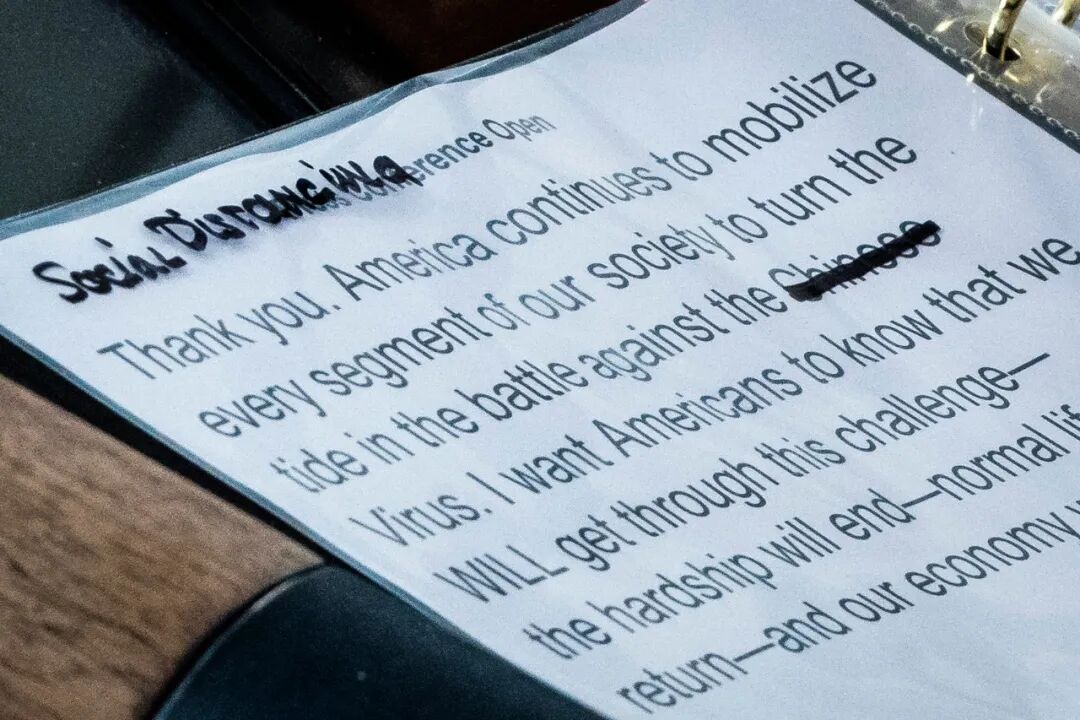 Social Distancing Conference Open
Thank you. America continues to mobilize
every segment of our society to turn the
tide in the battle against the Chinese
Virus. I want Americans to know that we
WILL get through this challenge—
the hardship will end—normal lif
return—and our economy